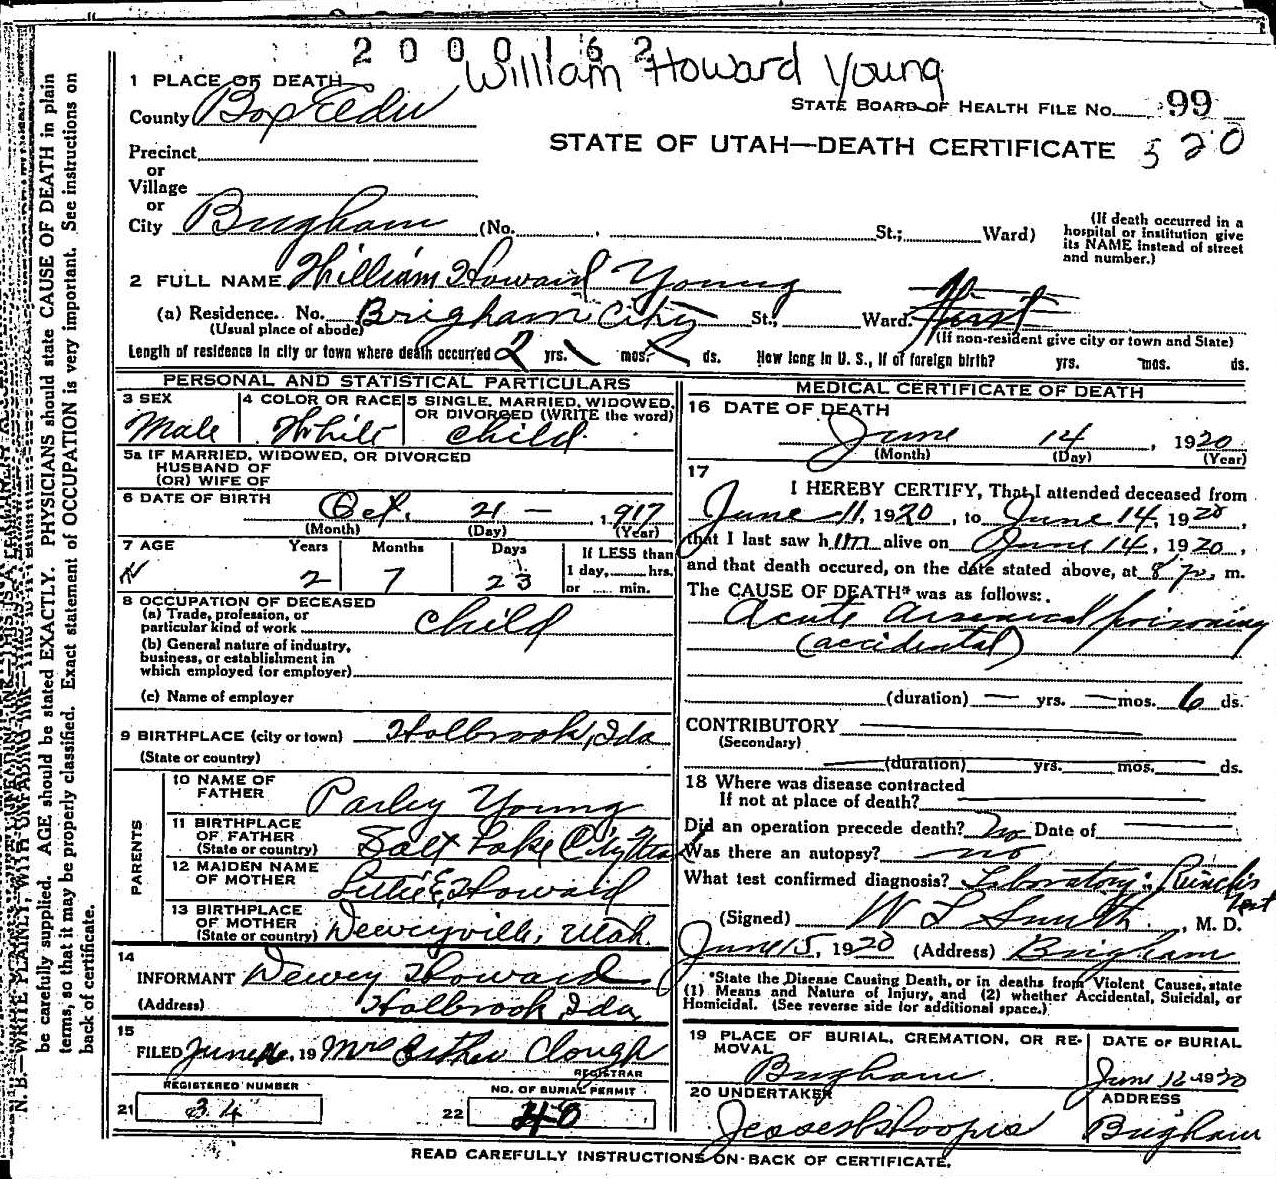 2000162
William Howard Young
1 PLACE OF DEATH
County Box Elder
STATE BOARD OF HEALTH FILE No. 99
STATE OF UTAH—DEATH CERTIFICATE 520
Precinct
or
Village
or
City Brigham (No. St.; Ward)
(If death occurred in a hospital or institution give its NAME instead of street and number.)
2 FULL NAME William Howard Young
(a) Residence. No. Brigham City St., Ward.
(Usual place of abode) (If non-resident give city or town and State)
Length of residence in city or town where death occurred 2 yrs. mos. ds. How long in U. S., if of foreign birth? yrs. mos. ds.
PERSONAL AND STATISTICAL PARTICULARS
3 SEX Male
4 COLOR OR RACE White
5 SINGLE, MARRIED, WIDOWED, OR DIVORCED (WRITE the word) child
5a IF MARRIED, WIDOWED, OR DIVORCED
HUSBAND OF
(OR) WIFE OF
6 DATE OF BIRTH Oct. 21 — , 1917
(Month) (Day) (Year)
7 AGE Years Months Days If LESS than
2 7 23 1 day, hrs.
or min.
8 OCCUPATION OF DECEASED
(a) Trade, profession, or
particular kind of work child
(b) General nature of industry,
business, or establishment in
which employed (or employer)
(c) Name of employer
9 BIRTHPLACE (city or town) Holbrook, Ida
(State or country)
PARENTS
10 NAME OF FATHER Parley Young
11 BIRTHPLACE OF FATHER (State or country) Salt Lake City Utah
12 MAIDEN NAME OF MOTHER Lillie E. Howard
13 BIRTHPLACE OF MOTHER (State or country) Deweyville, Utah.
14
INFORMANT Dewey Howard
(Address) Holbrook Ida
15
FILED June 16, 19 Mrs Esther Clough
REGISTRAR
REGISTERED NUMBER
21 34
NO. OF BURIAL PERMIT
22 40
MEDICAL CERTIFICATE OF DEATH
16 DATE OF DEATH
June 14 , 1920
(Month) (Day) (Year)
17
I HEREBY CERTIFY, That I attended deceased from
June 11, 1920, to June 14, 1920,
that I last saw him alive on June 14, 1920,
and that death occured, on the date stated above, at 8 p. m.
The CAUSE OF DEATH* was as follows:
Acute Arsenical poisoning
(accidental)
(duration) — yrs. — mos. 6 ds.
CONTRIBUTORY
(Secondary)
(duration) yrs. mos. ds.
18 Where was disease contracted
If not at place of death?
Did an operation precede death? No Date of
Was there an autopsy? no
What test confirmed diagnosis? Laboratory: Reinch's Test
(Signed) W L Smith, M. D.
June 15, 1920 (Address) Brigham
*State the Disease Causing Death, or in deaths from Violent Causes, state
(1) Means and Nature of Injury, and (2) whether Accidental, Suicidal, or
Homicidal. (See reverse side for additional space.)
19 PLACE OF BURIAL, CREMATION, OR REMOVAL
Brigham
DATE OF BURIAL
June 16 1920
20 UNDERTAKER
ADDRESS
Brigham
READ CAREFULLY INSTRUCTIONS ON BACK OF CERTIFICATE.
N. B.—WRITE PLAINLY, WITH UNFADING INK—THIS IS A PERMANENT
be carefully supplied. AGE should be stated EXACTLY. PHYSICIANS should state CAUSE OF DEATH in plain
terms, so that it may be properly classified. Exact statement of OCCUPATION is very important. See instructions on
back of certificate.